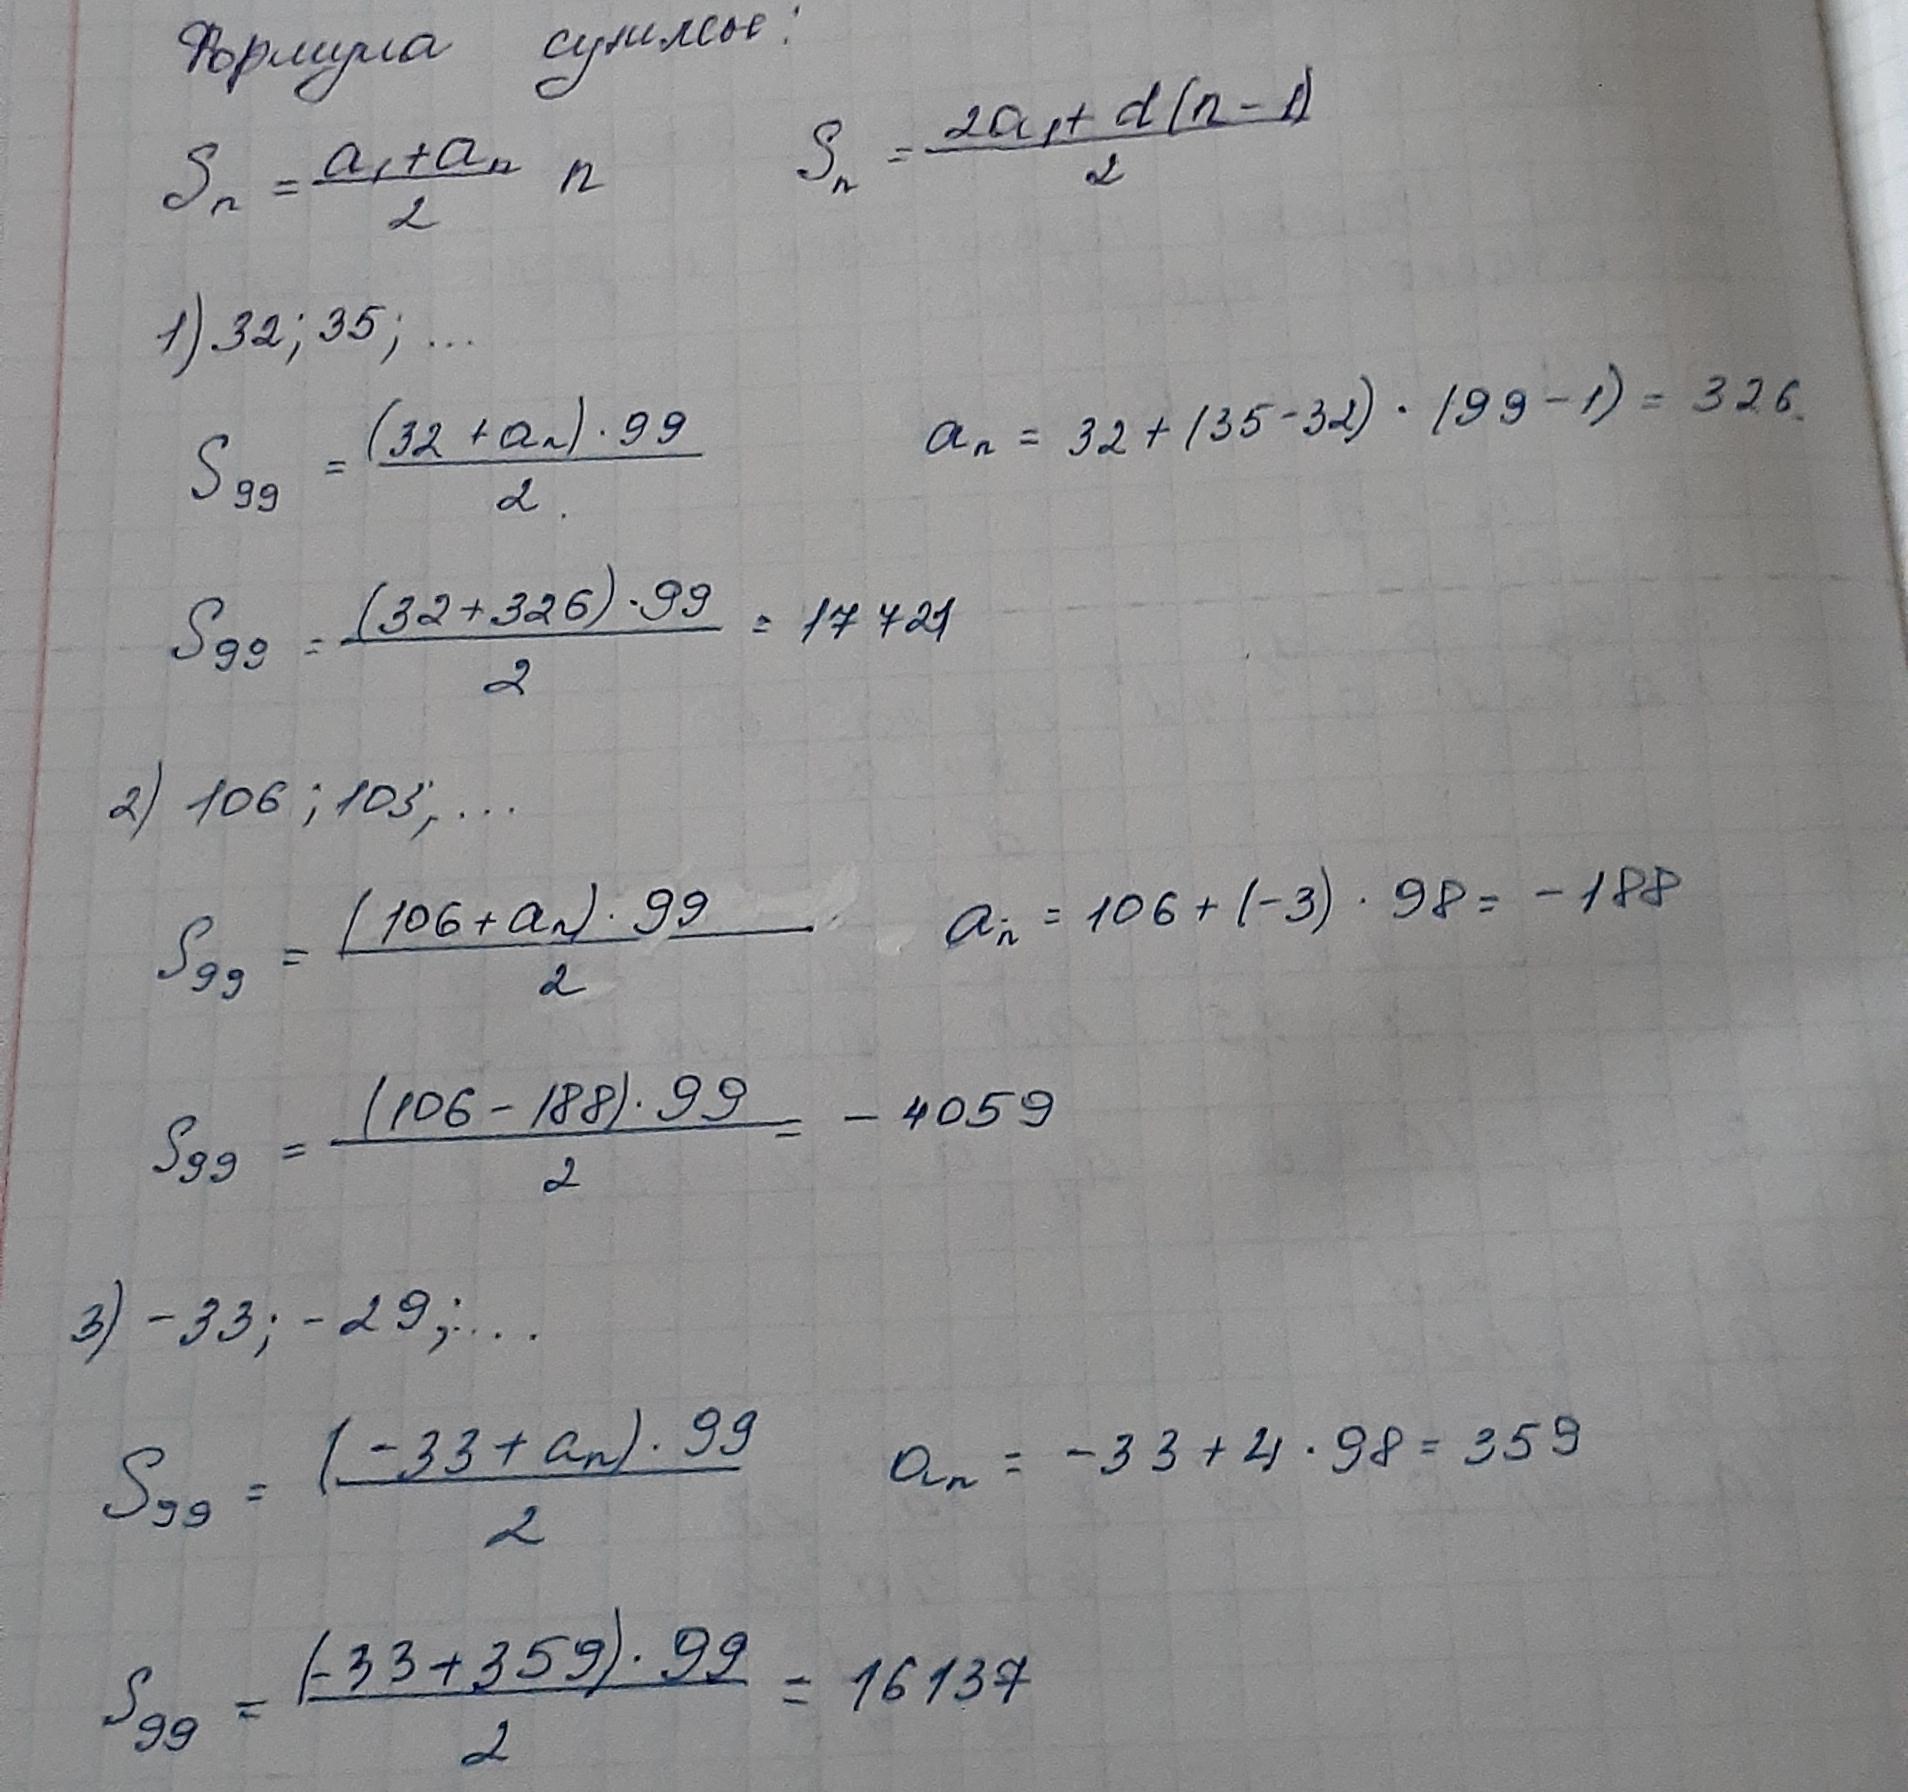 Формула суммы:
Sₙ = (a₁+aₙ)/2 n    Sₙ = (2a₁+d(n-1))/2
1) 32; 35; ...
S₉₉ = ((32+aₙ)·99)/2.    aₙ = 32+(35-32)·(99-1) = 326.
S₉₉ = ((32+326)·99)/2 = 17 721
2) 106; 103; ...
S₉₉ = ((106+aₙ)·99)/2    aₙ = 106+(-3)·98 = -188
S₉₉ = ((106-188)·99)/2 = -4059
3) -33; -29; ...
S₉₉ = ((-33+aₙ)·99)/2    aₙ = -33+4·98 = 359
S₉₉ = ((-33+359)·99)/2 = 16137